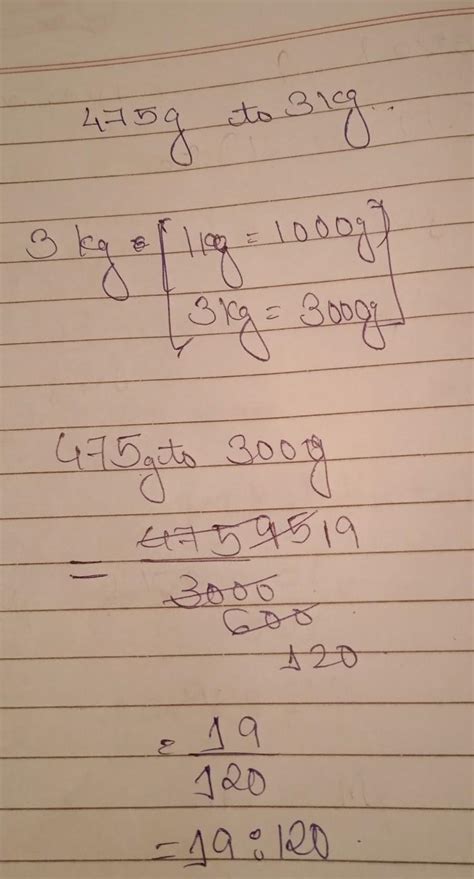 475g to 3kg.
3 kg = [1kg = 1000g]
[3kg = 3000g]
475g to 300g
= 475 95 19
3000
600
120
= 19
120
= 19:120